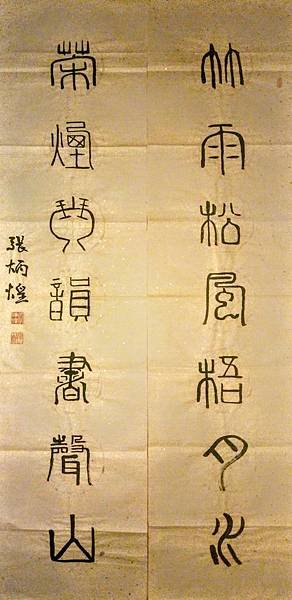 竹雨松風梧月水
茶煙琴韻書聲山
張炳煌